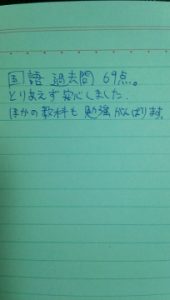 国語 過去問 69点。
とりあえず安心しました.
ほかの教科も勉強がんばります.